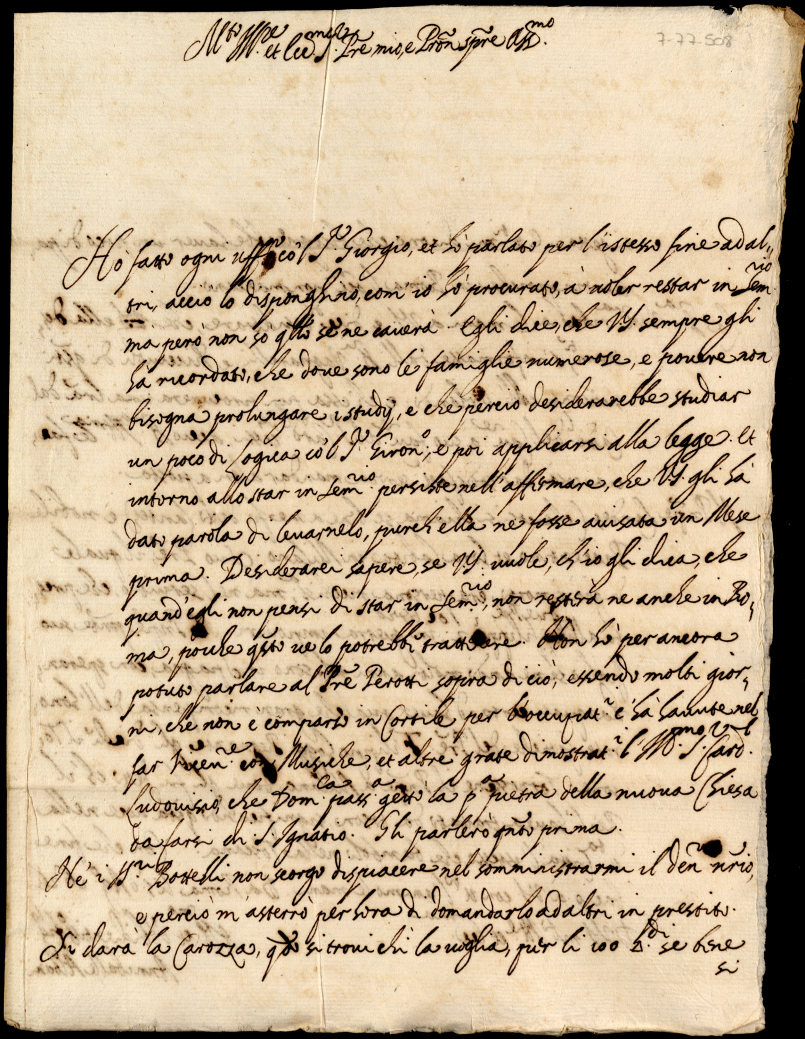 M.to Ill.re et Ecc.mo S.r P̃re mio, e Prõn sp̃re Oss.mo
7-77-508
Hò fatto ogni uff.o cõ'l S.r Giorgio, et hò parlato per l'istesso fine ad al-
tri, acciò lo disponghino, com'io hò procurato, à uoler restar in Sem.rio
ma però non sò q̃llo se ne cauerà. Egli dice, che VS sempre gli
hà ricordato, che doue sono le famiglie numerose, e pouere non
bisogna prolungare i studij, e che perciò desiderarebbe studiar
un poco di Logica cõ'l S.r Giron.o, e poi applicarsi alla legge. Et
intorno allo star in Sem.rio persiste nell'affirmare, che VS gli hà
dato parola di leuarnelo, purch'ella ne fosse auisata un Mese
prima. Desiderarei sapere, se VS uuole, ch'io gli dica, che
quand'egli non pensi di star in Sem.rio, non resterà ne anche in Ro-
ma, poiche q̃sto ue lo potrebbe trattenere. Non hò per ancora
potuto parlare al P̃re Perotti sopra di ciò, essendo molti gior-
ni, che non è comparso in Cortile per l'occupat.ni c'hà hauute nel
far con Musiche, et altre grate dimostrat.ni l'Ill.mo S.r Card.l
Ludouisio, che Dom.ca pass.a gettò la p.a pietra della nuoua Chiesa
da farsi di S. Ignatio. Gli parlerò q̃nto prima.
Ne' i SS.ri Bottelli non scorgo dispiacere nel somministrarmi il den.ro ñrio,
e perciò m'asterrò per hora di domandarlo ad altri in prestito.
Si darà la Carozza, q̃do si troui chi la uoglia, per li 100 se bene
si